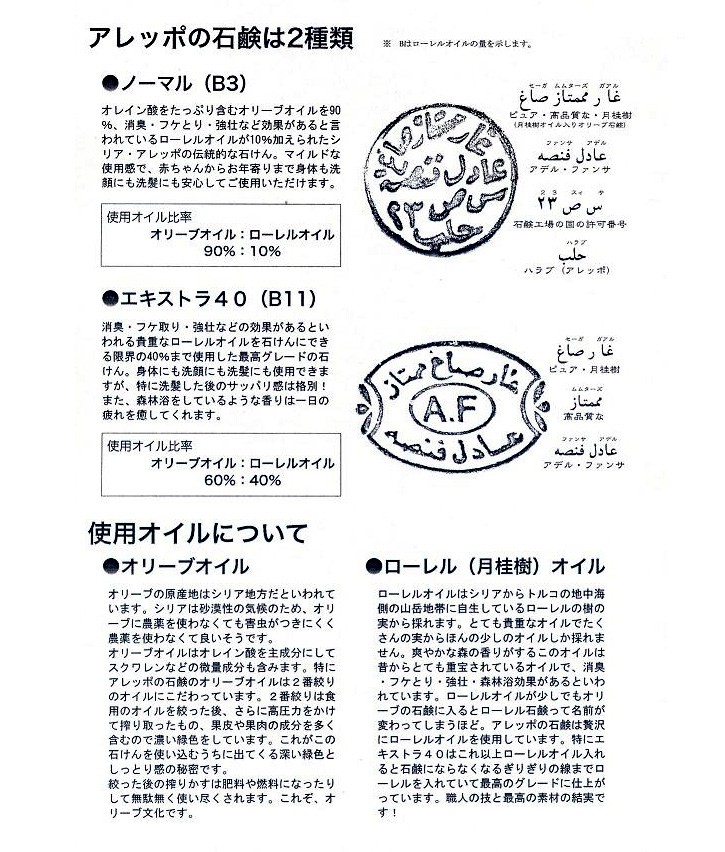 アレッポの石鹸は2種類
※ Bはローレルオイルの量を示します。
●ノーマル（B3）
オレイン酸をたっぷり含むオリーブオイルを90
%、消臭・フケとり・強壮など効果があると言
われているローレルオイルが10%加えられたシ
リア・アレッポの伝統的な石けん。マイルドな
使用感で、赤ちゃんからお年寄りまで身体も洗
顔にも洗髪にも安心してご使用いただけます。
使用オイル比率
オリーブオイル：ローレルオイル
90%：10%
غار ممتاز صاغ
عادل فنصه
س ص ٢٣
حلب
セーガ ムムターズ ガアル
غار ممتاز صاغ
ピュア・高品質な・月桂樹
（月桂樹オイル入りオリーブ石鹸）
ファンサ アデル
عادل فنصه
アデル・ファンサ
２３ スィ サ
س ص ٢٣
石鹸工場の国の許可番号
ハラブ
حلب
ハラブ（アレッポ）
●エキストラ４０（B11）
消臭・フケ取り・強壮などの効果があるとい
われる貴重なローレルオイルを石けんにでき
る限界の40%まで使用した最高グレードの石
けん。身体にも洗顔にも洗髪にも使用できま
すが、特に洗髪した後のサッパリ感は格別！
また、森林浴をしているような香りは一日の
疲れを癒してくれます。
使用オイル比率
オリーブオイル：ローレルオイル
60%：40%
غار صاغ ممتاز
A.F
عادل فنصه
セーガ ガアル
غار صاغ
ピュア・月桂樹
ムムターズ
ممتاز
高品質な
ファンサ アデル
عادل فنصه
アデル・ファンサ
使用オイルについて
●オリーブオイル
オリーブの原産地はシリア地方だといわれて
います。シリアは砂漠性の気候のため、オリ
ーブに農薬を使わなくても害虫がつきにくく
農薬を使わなくて良いそうです。
オリーブオイルはオレイン酸を主成分にして
スクワレンなどの微量成分も含みます。特に
アレッポの石鹸のオリーブオイルは２番絞り
のオイルにこだわっています。２番絞りは食
用のオイルを絞った後、さらに高圧力をかけ
て搾り取ったもの、果皮や果肉の成分を多く
含むので濃い緑色をしています。これがこの
石けんを使い込むうちに出てくる深い緑色と
しっとり感の秘密です。
絞った後の搾りかすは肥料や燃料になったり
して無駄無く使い尽くされます。これぞ、オ
リーブ文化です。
●ローレル（月桂樹）オイル
ローレルオイルはシリアからトルコの地中海
側の山岳地帯に自生しているローレルの樹の
実から採れます。とても貴重なオイルでたく
さんの実からほんの少しのオイルしか採れま
せん。爽やかな森の香りがするこのオイルは
昔からとても重宝されているオイルで、消臭
・フケとり・強壮・森林浴効果があるといわ
れています。ローレルオイルが少しでもオリ
ーブの石鹸に入るとローレル石鹸って名前が
変わってしまうほど。アレッポの石鹸は贅沢
にローレルオイルを使用しています。特にエ
キストラ４０はこれ以上ローレルオイル入れ
ると石鹸にならなくなるぎりぎりの線までロ
ーレルを入れていて最高のグレードに仕上が
っています。職人の技と最高の素材の結実で
す！